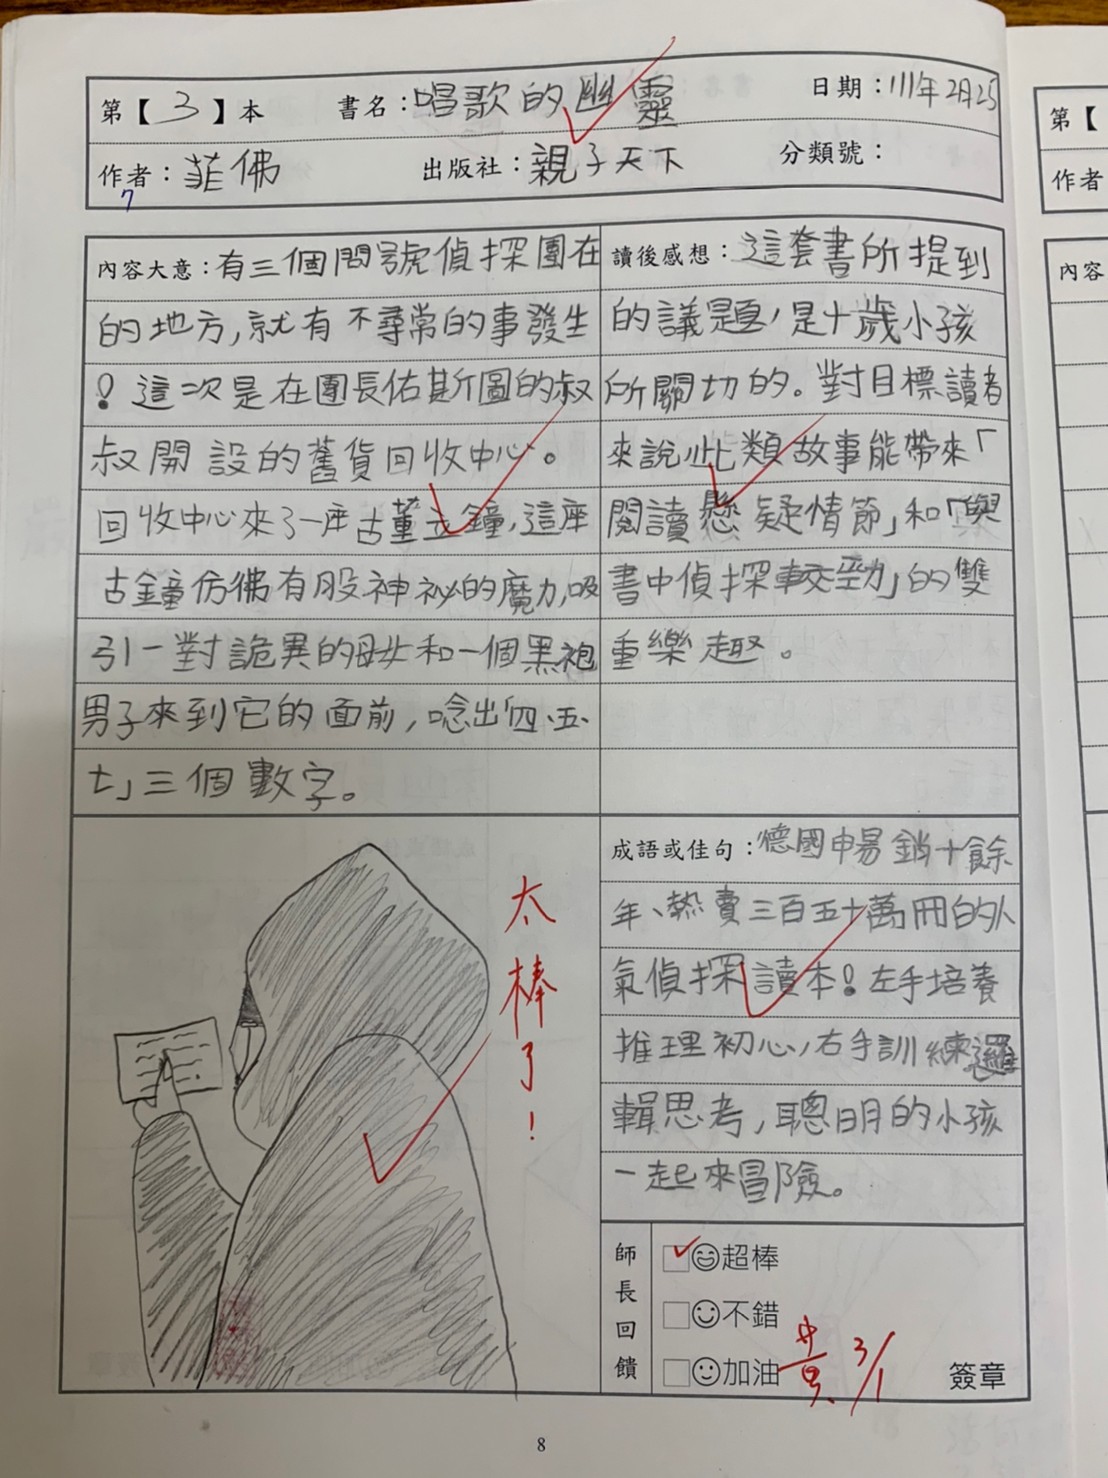 第【3】本 書名：唱歌的幽靈 日期：111年2月25
作者：菲佛 出版社：親子天下 分類號：
7
內容大意：有三個問號偵探團在
的地方,就有不尋常的事發生
！這次是在團長佑斯圖的叔
叔開設的舊貨回收中心。
回收中心來了一座古董古鐘,這座
古鐘仿彿有股神祕的魔力,吸
引一對詭異的母女和一個黑袍
男子來到它的面前,唸出「四、五、
七」三個數字。
讀後感想：這套書所提到
的議題,是十歲小孩
所關切的。對目標讀者
來說,此類故事能帶來「
閱讀懸疑情節」和「與
書中偵探較勁」的雙
重樂趣。
太棒了！
成語或佳句：德國暢銷十餘
年、熱賣三百五十萬冊的人
氣偵探讀本！左手培養
推理初心,右手訓練邏
輯思考,聰明的小孩
一起來冒險。
師長回饋
超棒
不錯
加油
3/1
簽章
8
第【
作者
內容